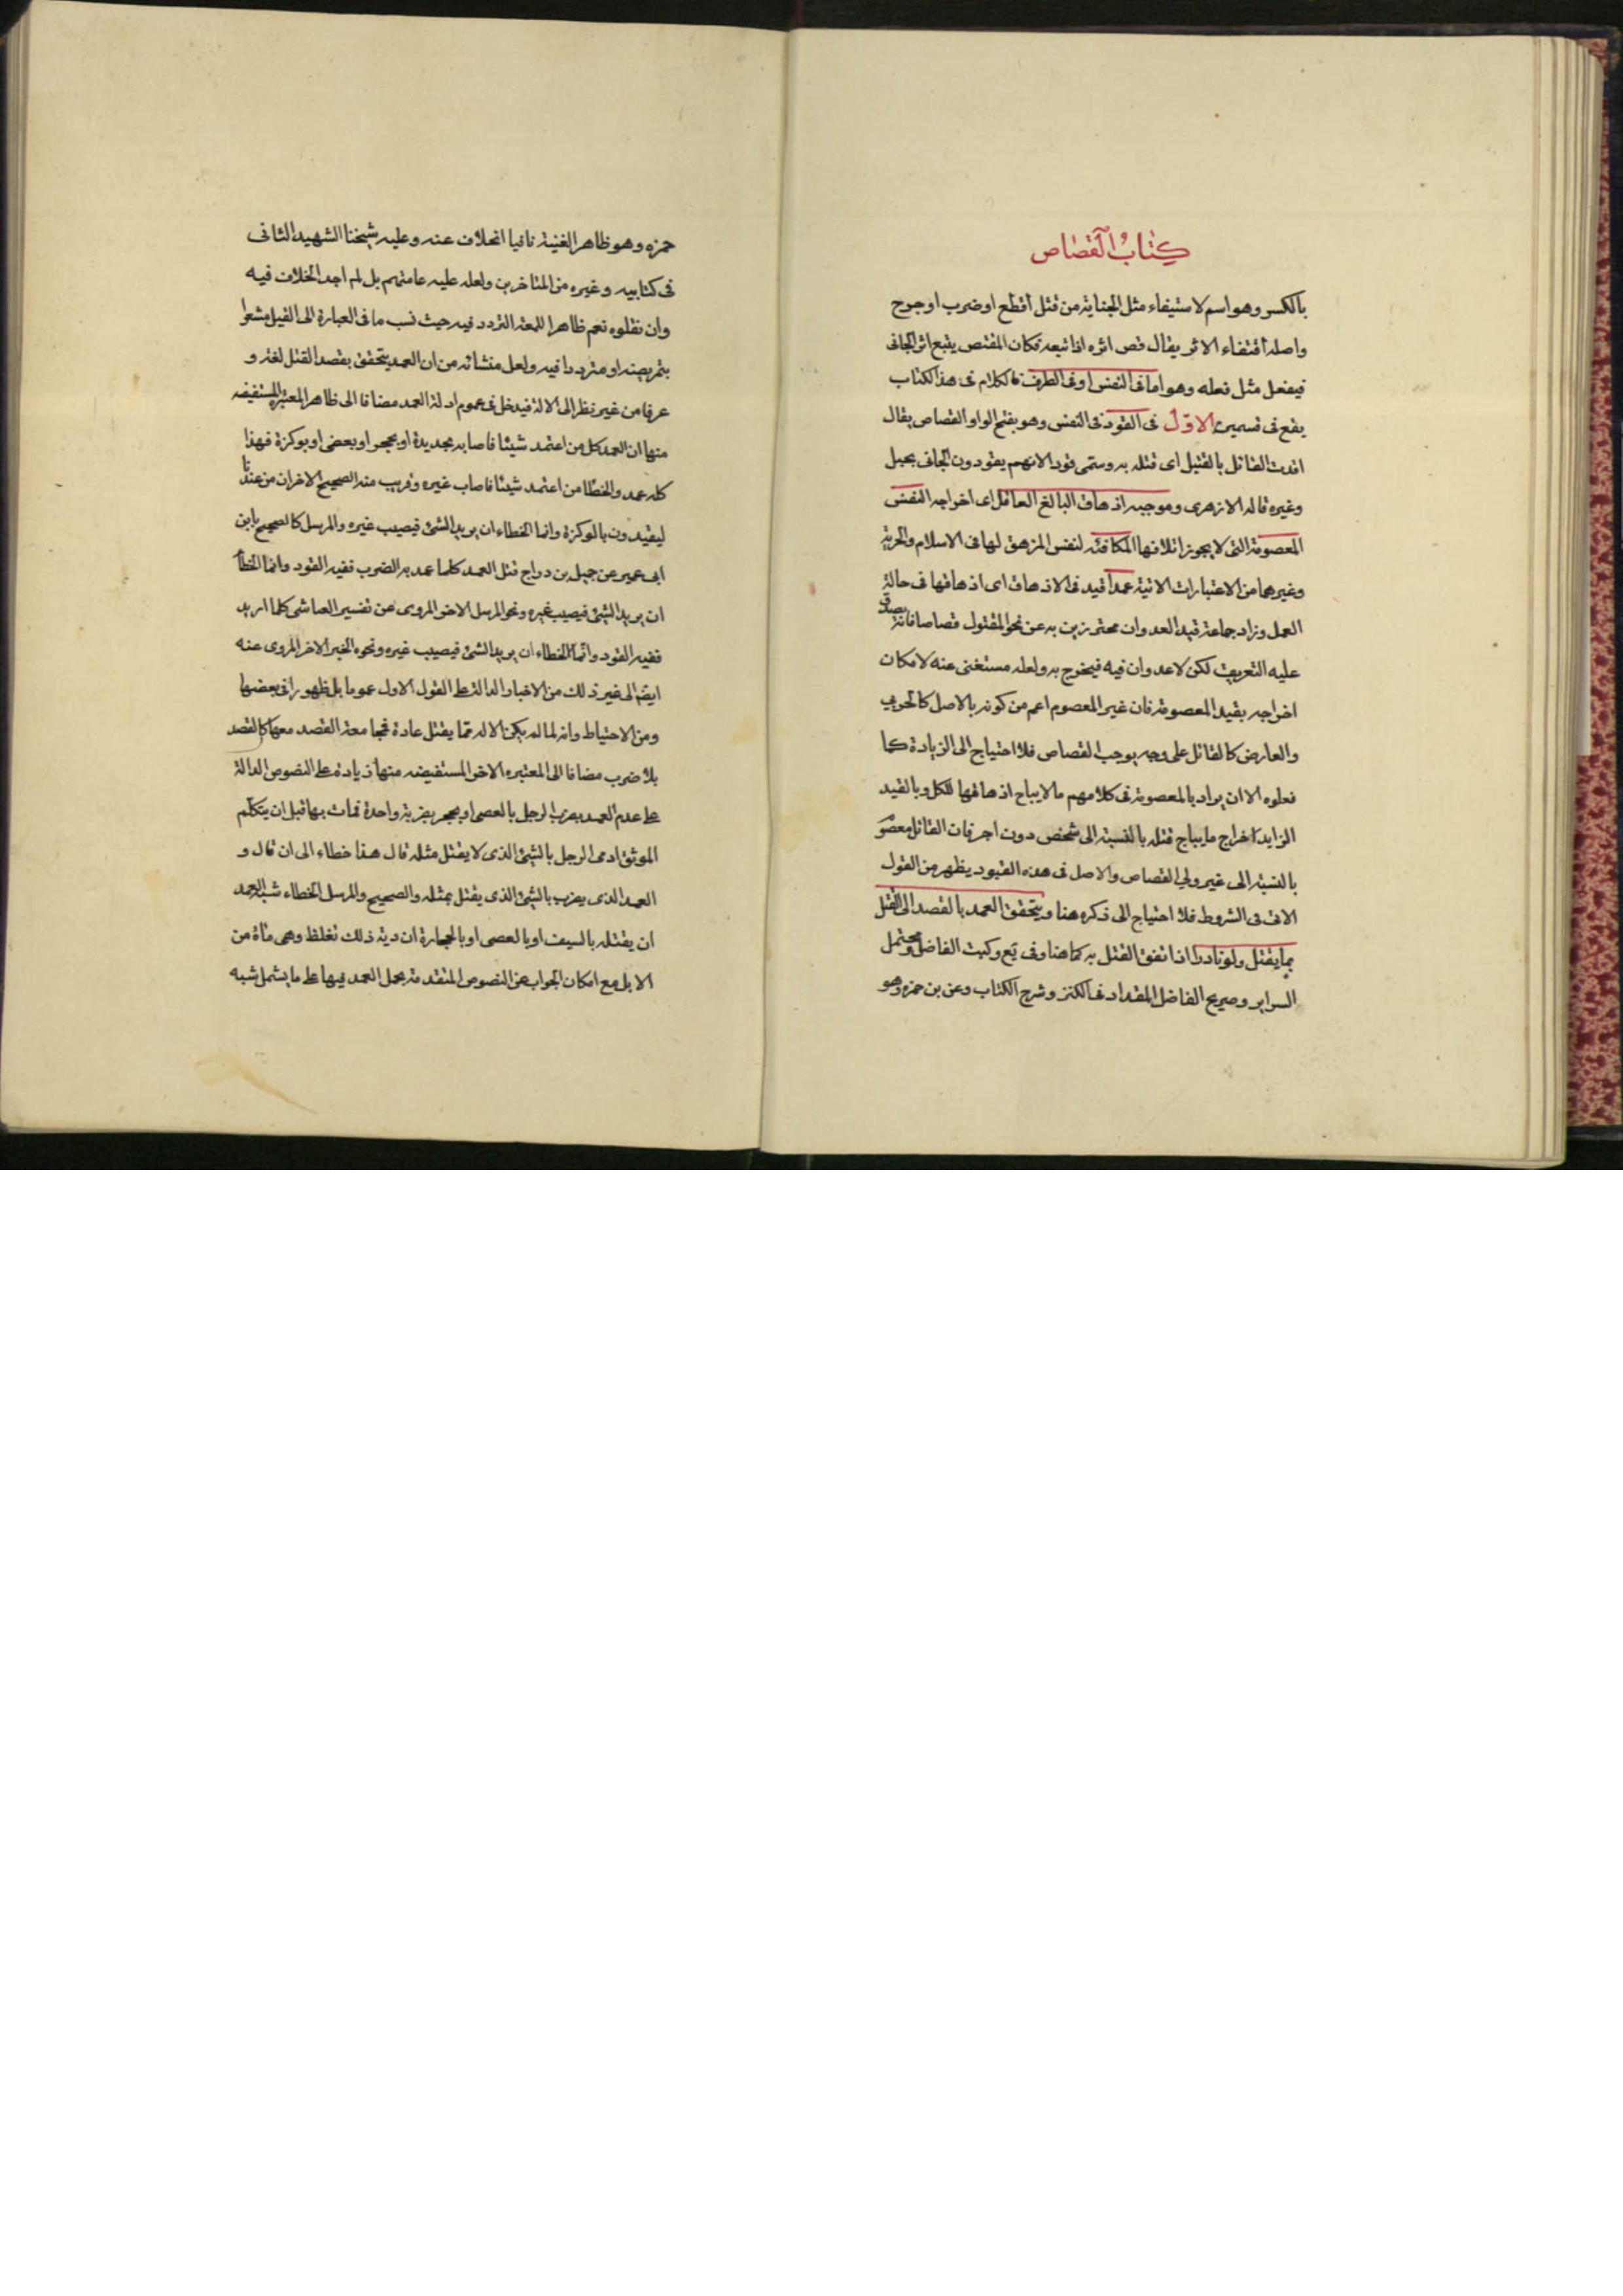 كتاب القصاص
بالكسر وهو اسم لاستيفاء مثل الجناية من قتل اقطع او ضرب او جرح
واصله اقتفاء الاثر يقال قص اثره اذا تبعه فكان المقتص يتبع اثر الجانى
فيفعل مثل فعله وهو اما فى النفس او فى الطرف فالكلام فى هذا الكتاب
يقع فى قسمين الاوّل فى القود فى النفس وهو بفتح الواو القصاص يقال
اقدت القاتل بالقتيل اى قتله به وسمى قودا لانهم يقودون الجانى بحبل
وغيره قاله الازهرى وموجبه اذهاق البالغ العاقل اى اخراجه النفس
المعصومة التى لا يجوز اتلافها المكافئة لنفس المزهق لها فى الاسلام والحرية
وغيرهما من الاعتبارات الاتية عمدا قيد فى الاذهاق اى اذهاقها فى حالة
العمل وزاد جماعة قيد العدوان محترزين به عن نحو المقتول قصاصا فانه يصدق
عليه التعريف لكن لا عدوان فيه فيخرج به ولعله مستغنى عنه لامكان
اخراجه بقيد المعصومة فان غير المعصوم اعم من كونه بالاصل كالحربى
والعارض كالقاتل على وجه يوجب القصاص فلا احتياج الى الزيادة كما
فعلوه الا ان يراد بالمعصومة فى كلامهم ما لا يباح اذهاقها للكل وبالقيد
الزايد اخراج ما يباح قتله بالنسبة الى شخص دون اخر فان القاتل معصو
بالنسبة الى غير ولى القصاص والاصل فى هذه القيود يظهر من القول
الاتى فى الشروط فلا احتياج الى ذكره هنا ويتحقق العمد بالقصد الى القتل
بما يقتل ولو نادرا اذا اتفق القتل به كما هنا وفى يع وكتب الفاضل ومحتمل
السراير وصريح الفاضل المقداد فى الكنز وشرح الكتاب وعن بن حمزه وهو
حمزه وهو ظاهر الغنية نافيا الخلاف عنه وعليه شيخنا الشهيد الثانى
فى كتابيه وغيره من المتاخرين ولعله عليه عامتهم بل لم اجد الخلاف فيه
وان نقلوه نعم ظاهر اللمعة التردد فيه حيث نسب ما فى العبارة الى القيل مشعرا
بتمريضه او مترددا فيه ولعل منشائه من ان العمد يتحقق بقصد القتل لغة و
عرفا من غير نظر الى الالة فيدخل فى عموم ادلة العمد مضافا الى ظاهر المعتبرة المستفيضه
منها ان العمد كل من اعتمد شيئا فاصابه بحديدة او بحجر او بعصى او بوكزة فهذا
كله عمد والخطا من اعتمد شيئا فاصاب غيره وقريب منه الصحيح الاخر ان من عندنا
ليقيدون بالوكزة وانما الخطاء ان يريد الشئ فيصيب غيره والمرسل كالصحيح بابن
ابى عمير عن جميل بن دراج قتل العمد كلما عمد به الضرب ففيه القود وانما الخطأ
ان يريد الشئ فيصيب غيره ونحو المرسل الاخر المروى عن تفسير العياشى كلما اريد
ففيه القود وانما الخطاء ان يريد الشئ فيصيب غيره ونحوه الخبر الاخر المروى عنه
ايضا الى غير ذلك من الاخبار الدالة على القول الاول عموما بل ظهورا فى بعضها
ومن الاحتياط وانه لما لم يكن الاله مما يقتل عادة فمجامعة القصد معها كالقصد
بلا ضرب مضافا الى المعتبره الاخر المستفيضه منها زيادة على النصوص الدالة
على عدم العمد بضرب الرجل بالعصى او بحجر بضربة واحدة فمات بها قبل ان يتكلم
الموثق ادمى الرجل بالشئ الذى لا يقتل مثله قال هذا خطاء الى ان قال و
العمد الذى يضرب بالشئ الذى يقتل بمثله والصحيح والمرسل الخطاء شبه العمد
ان يقتله بالسيف او بالعصى او بالحجارة ان دية ذلك تغلظ وهى مأة من
الابل مع امكان الجواب عن النصوص المتقدمة بحمل العمد فيها على ما يشمل شبه